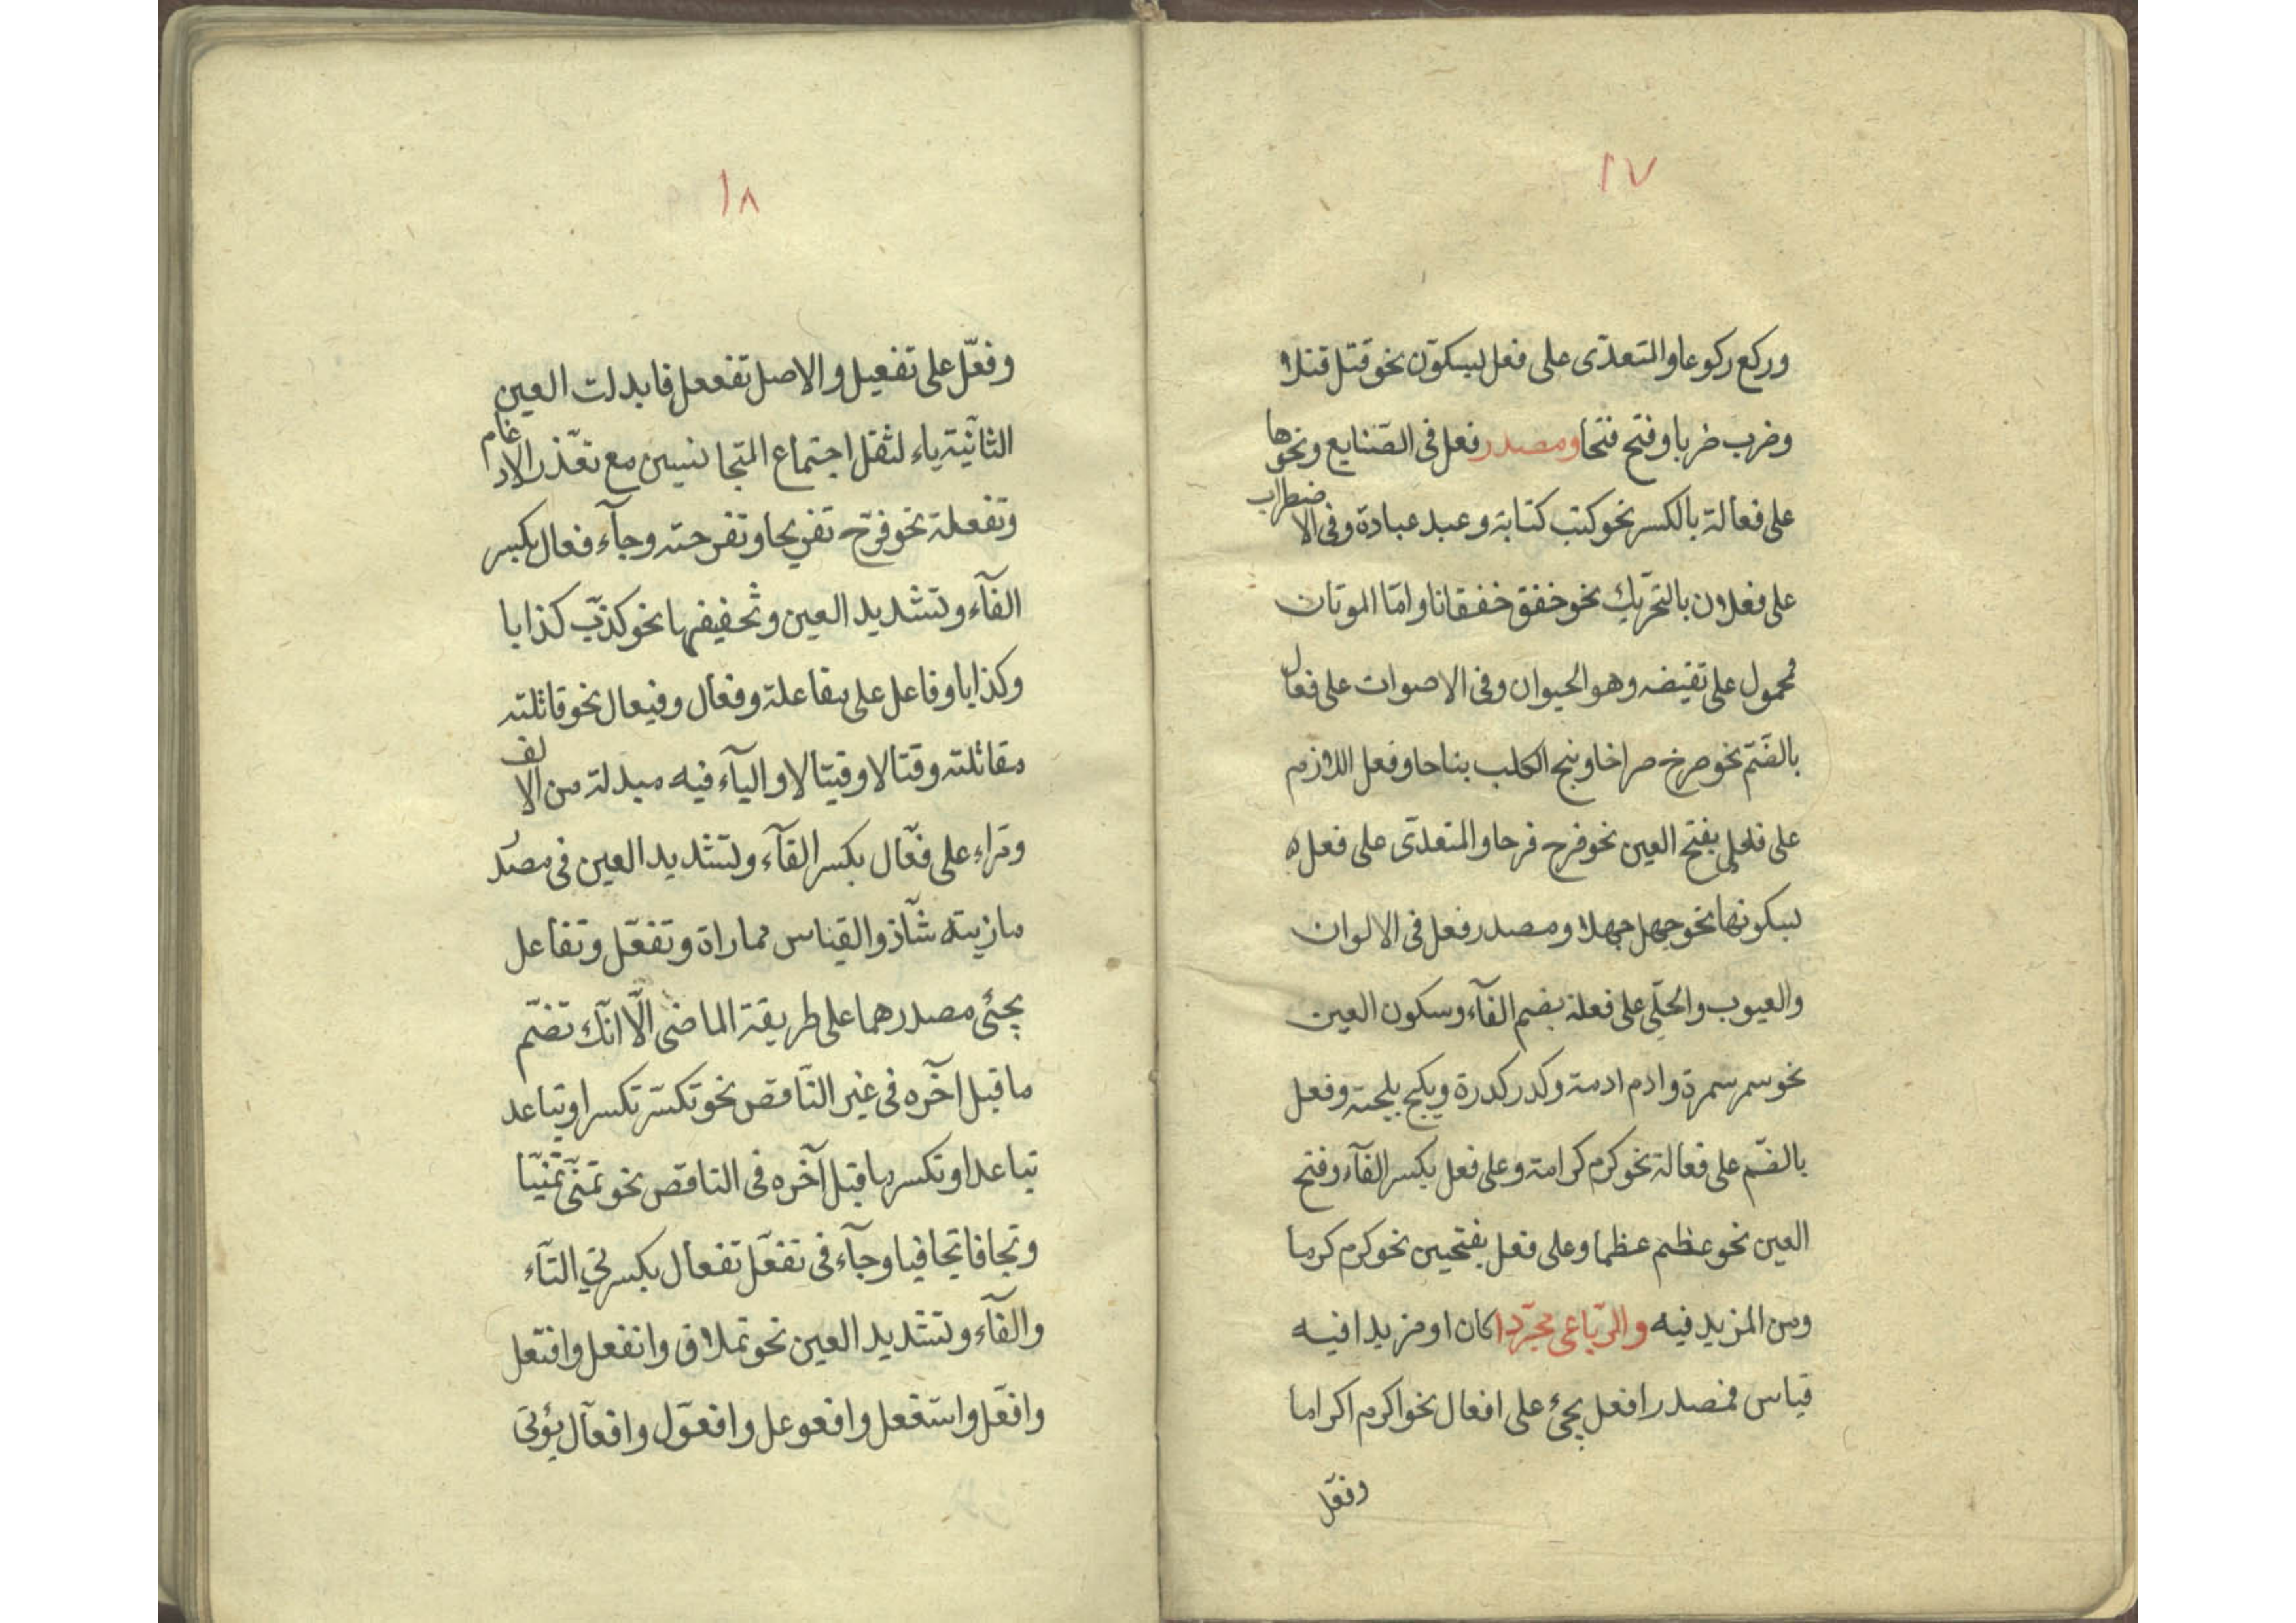 ١٧
وركع ركوعا والمتعدّى على فعل بسكون نحو قتل قتلا
وضرب ضربا وفتح فتحا ومصدر فعل فى الصّنايع ونحوها
على فعالة بالكسر نحو كتب كتابة وعبد عبادة وفى الاضطراب
على فعلان بالتحريك نحو خفق خفقانا وامّا الموتان
فمحمول على نقيضه وهو الحيوان وفى الاصوات على فعال
بالضّم نحو صرخ صراخا ونبح الكلب بناحا وفعل اللازم
على فعل بفتح العين نحو فرح فرحا والمتعدّى على فعل
بسكونها نحو جهل جهلا ومصدر فعل فى الالوان
والعيوب والحلّى على فعلة بضم الفآء وسكون العين
نحو سمر سمرة وادم ادمة وكدر كدرة وبلج بلجة وفعل
بالضّم على فعالة نحو كرم كرامة وعلى فعل بكسر الفآء وفتح
العين نحو عظم عظما وعلى فعل بفتحين نحو كرم كرما
ومن المزيد فيه والرّباعى مجرّدا كان او مزيدا فيه
قياس فمصدر افعل يجئ على افعال نحو اكرم اكراما
وفعّل
١٨
وفعّل على تفعيل والاصل تفععل فابدلت العين
الثانية ياء لثقل اجتماع المتجانسين مع تعذّر الادغام
وتفعلة نحو فرّح تفريحا وتفرحة وجآء فعال بكسر
الفآء وتشديد العين وتخفيفها نحو كذّب كذابا
وكذابا وفاعل على مفاعلة وفعال وفيعال نحو قاتلته
مقاتلته وقتالا وقيتالا واليآء فيه مبدلة من الالف
ومراء على فعّال بكسر الفآء وتشديد العين فى مصدر
ماريته شآذ والقياس مماراة وتفعّل وتفاعل
يجئى مصدرهما على طريقة الماضى الّا انّك تضّم
ما قبل آخره فى غير النّاقص نحو تكسّر تكسرا وتباعد
تباعدا وتكسر ما قبل آخره فى الناقص نحو تمنّى تمنيّا
وتجافا تجافيا وجآء فى تفعّل تفعال بكسرتي التآء
والفآء وتشديد العين نحو تملاق وانفعل وافتعل
وافعّل واستفعل وافعوعل وافعوّل وافعآل يؤتى